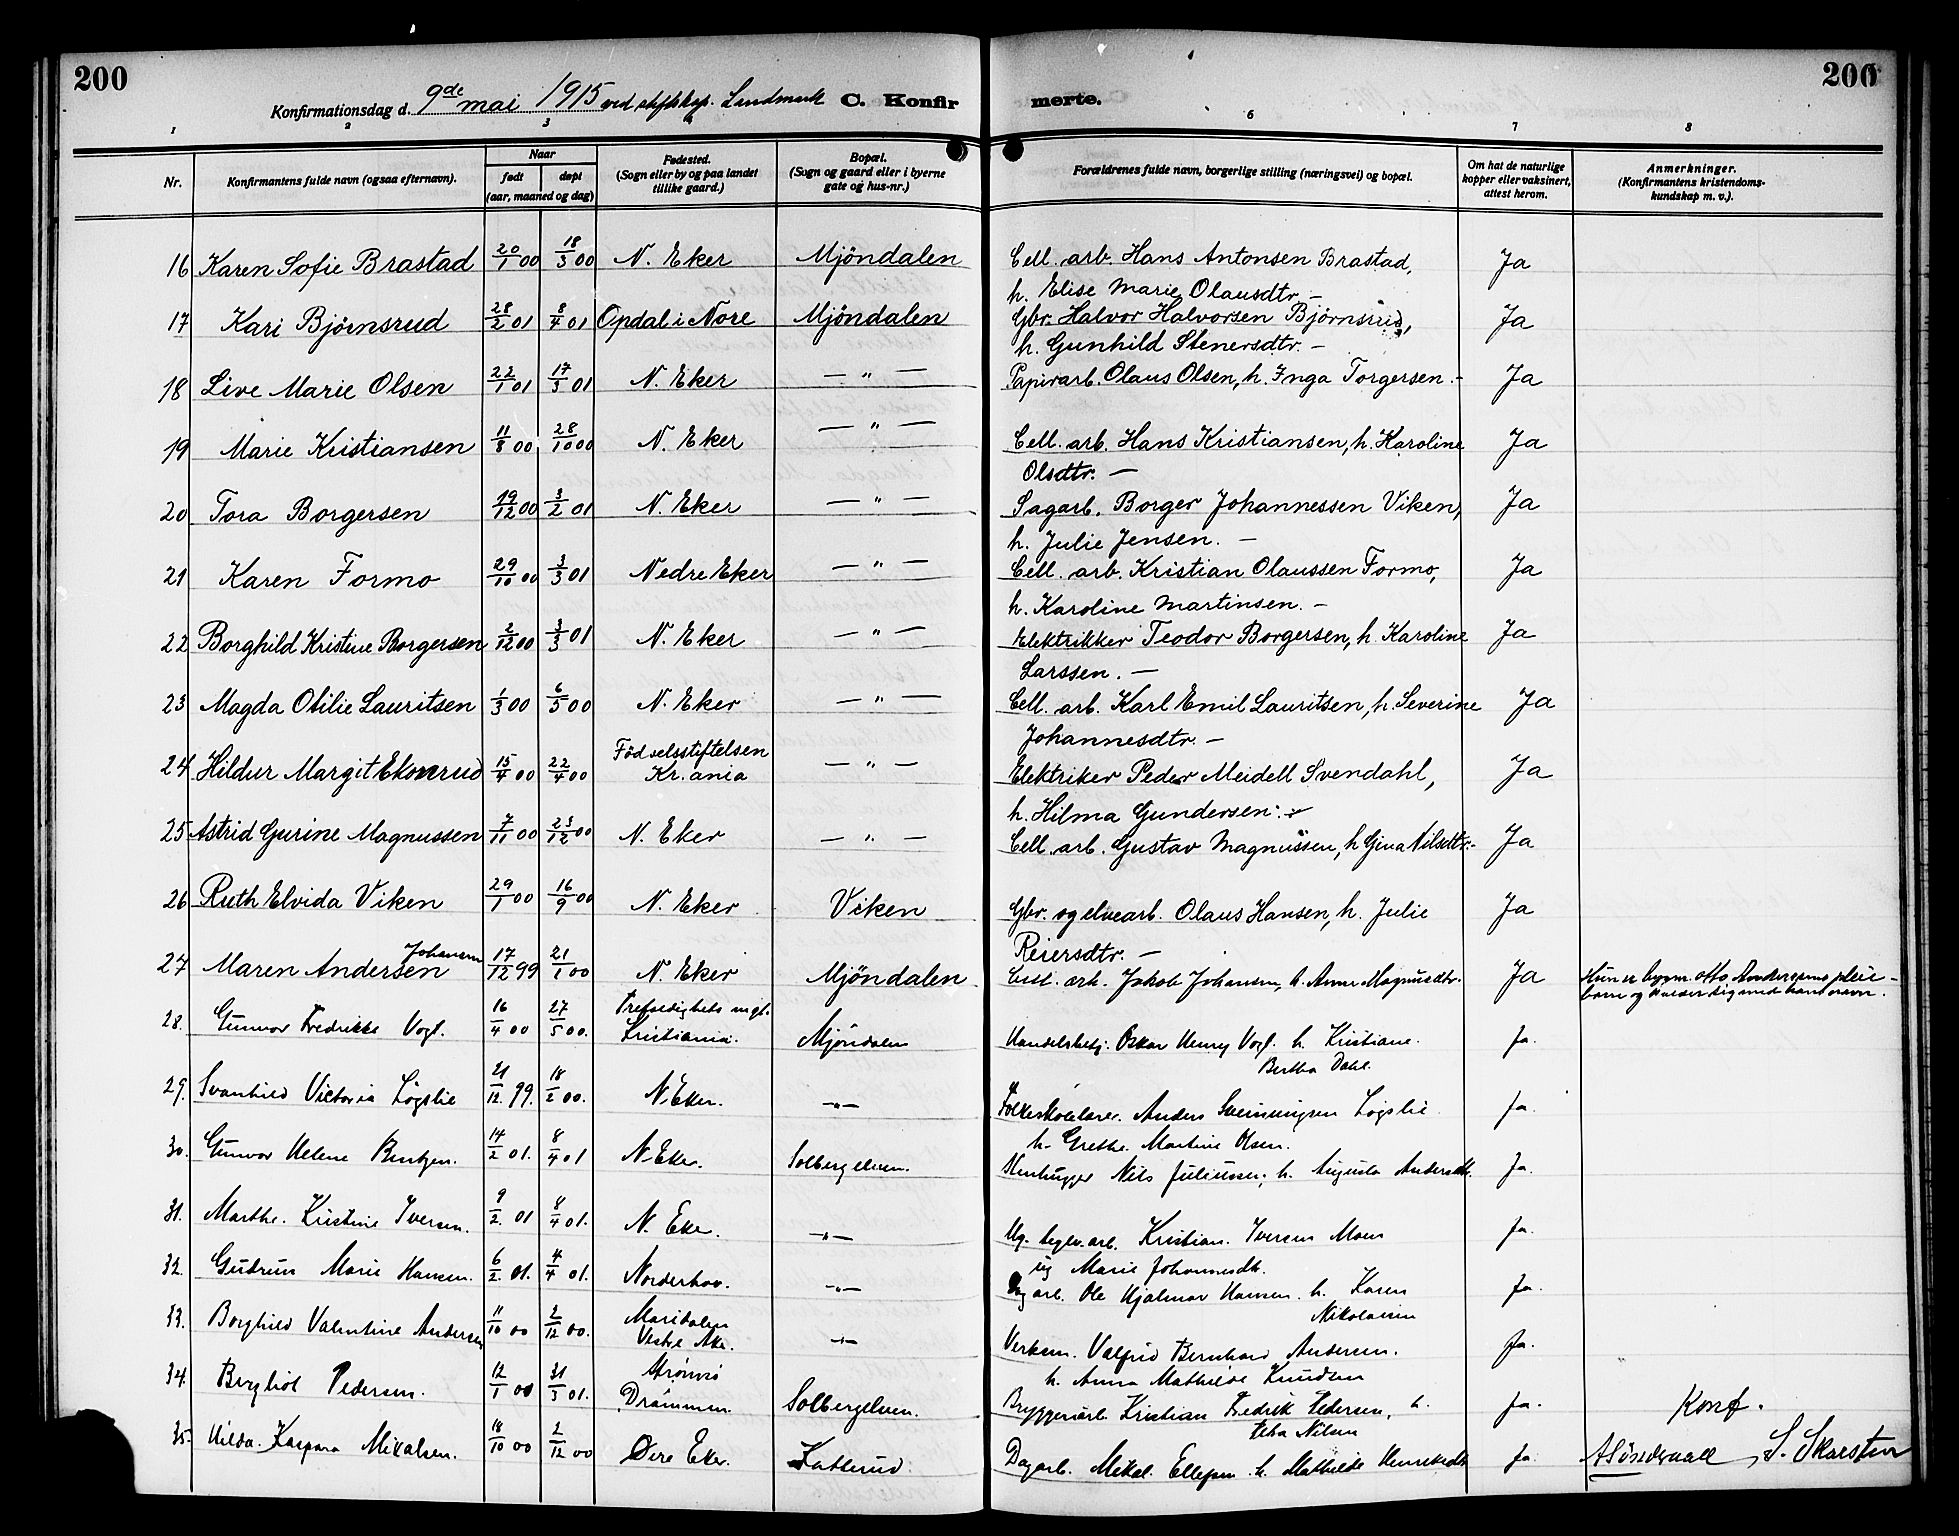 200
200
Konfirmationsdag d. 9de mai 1915 ved stiftskap. Landmark C. Konfirmerte.
1 2 3 4 6 7 8
Nr.
Konfirmantens fulde navn (ogsaa efternavn).
Naar
født døpt
(aar, maaned og dag)
Fødested.
(Sogn eller by og paa landet
tillike gaard.)
Bopæl.
(Sogn og gaard eller i byerne
gate og hus-nr.)
Forældrenes fulde navn, borgerlige stilling (næringsvei) og bopæl.
Om hat de naturlige
kopper eller vaksinert,
attest herom.
Anmerkninger.
(Konfirmantens kristendoms-
kundskap m. v.).
16 Karen Sofie Brastad 20/1 00 18/3 00 N. Eker Mjöndalen Cell. arb. Hans Antonsen Brastad, Ja
h. Elise Marie Olausdtr. –
17 Kari Bjørnsrud 28/2 01 8/4 01 Opdal i Nore Mjöndalen Gbr. Halvor Halvorsen Bjørnsrud, Ja
h. Gunhild Stenersdtr. –
18 Live Marie Olsen 22/1 01 17/3 01 N. Eker — " — Papirarb. Olaus Olsen, h. Inga Torgersen. – Ja
19 Marie Kristiansen 11/8 00 28/10 00 N. Eker — " — Cell. arb. Hans Kristiansen, h. Karoline Ja
Olsdtr. —
20 Tora Borgersen 19/12 00 3/2 01 N. Eker — " — Sagarb. Borger Johannessen Viken, Ja
h. Julie Jensen. —
21 Karen Formo 29/10 00 3/3 01 Nedre Eker — " — Cell. arb. Kristian Olaussen Formo, Ja
h. Karoline Martinsen. –
22 Borghild Kristine Borgersen 2/12 00 3/3 01 N. Eker — " — Elektrikker Teodor Borgersen, h. Karoline Ja
Larssen. —
23 Magda Otilie Lauritsen 1/3 00 6/5 00 N. Eker — " — Cell. arb. Karl Emil Lauritsen, h. Severine Ja
Johannesdtr. –
24 Hildur Margit Ekornrud 15/4 00 22/4 00 Födselsstiftelsen Kr.ania — " — Elektriker Peder Meidell Svendahl, Ja
h. Hilma Gundersen.
25 Astrid Gurine Magnussen 7/11 00 23/12 00 N. Eker — " — Cell. arb. Gustav Magnussen, h Gina Nilsdtr. – Ja
26 Ruth Elvida Viken 29/1 00 16/9 00 N. Eker Viken Gbr. og elvearb. Olaus Hansen, h. Julie Ja
Reiersdtr. —
27 Maren Andersen Johansen 17/12 99 21/1 00 N. Eker Mjöndalen Cell. arb. Jakob Johansen, h. Anne Magnusdtr. Ja Hun er bygm. Otto Andersens pleie-
barn og
28. Gunvor Fredrikke Vogl. 16/4 00 27/5 00. Trefoldighets mgt. Kristiania. Mjöndalen Handelsbetj. Oskar Henry Vogl. h. Kristiane. Ja.
Bertha Dahl.
29. Svanhild Victoria Løgslie 21/12. 99. 18/2 00. N. Eker. —"— Folkeskolelærer. Anders Sveinungsen Løgslie Ja.
h. Grethe. Martine Olsen.
30. Gunvor Helene Bentzen. 14/2 01. 8/4 01 N. Eker. Solbergelven. Stenhugger Nils Juliussen, h. Augusta Andersdtr. Ja.
31. Marthe. Kristine Iversen. 9/2. 01 8/4 01. N. Eker. —"— Ug. teglv.arb. Kristian. Iversen Moen Ja.
ug Marie Johannesdtr.
32. Gudrun Marie Hansen. 6/2. 01. 4/4 01. Norderhov. —"— Dagarb. Ole Hjalmar Hansen. h. Karen Ja.
Nikolaisen
33. Borghild Valentine Andersen 11/10 00 2/12 00. Maridalen Vestre Aker. —"— Verksm. Valfrid Bernhard Andersen. Ja.
h. Anna Mathilde Knudsen
34. Bergliot Pedersen. 12/1 00 31/3 01. Strömsö Drammen. Solbergelven. Bryggeriarb. Kristian Fredrik Pedersen, h. Ja.
Petra Nilsen
35. Hilda. Kaspara Mikalsen. 18/10 00 2/12 00 Øvre Eker. Katterud Dagarb. Mikal. Ellefsen. h. Mathilde Henriksdtr Ja.
Konf.
S. Skarsten